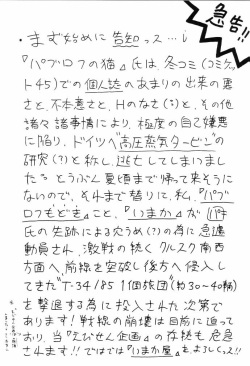 急告!!
・まず始めに告知っス…!
『パブロフの猫』氏は、冬コミ(コミケッ
ト45)での個人誌のあまりの出来の悪
さと、不本意さと、Hのなさ(?)と、その他
諸々諸事情により、極度の自己嫌悪
に陥り、ドイツへ"高圧蒸気タービン"の
研究(?)と称し、逃亡してしまいまし
た。とうぶん夏頃まで帰って来そうに
ないので、それまで替りに、私、『パブ
ロフもどき』こと、『いまか』が『パ
氏の先跡による穴うめ(?)の為に急遽
動員され、激戦の続くクルスク南西
方面へ、前線を突破し後方へ侵入し
てきた"T-34/85 1個旅団(約30〜40輌)
を撃退する為に投入された次第で
あります!戦線の崩壊は目前に迫って
おり、当『えびせん企画』の存続も危急
されます!!ではでは『いまか屋』をよろしくっス!!